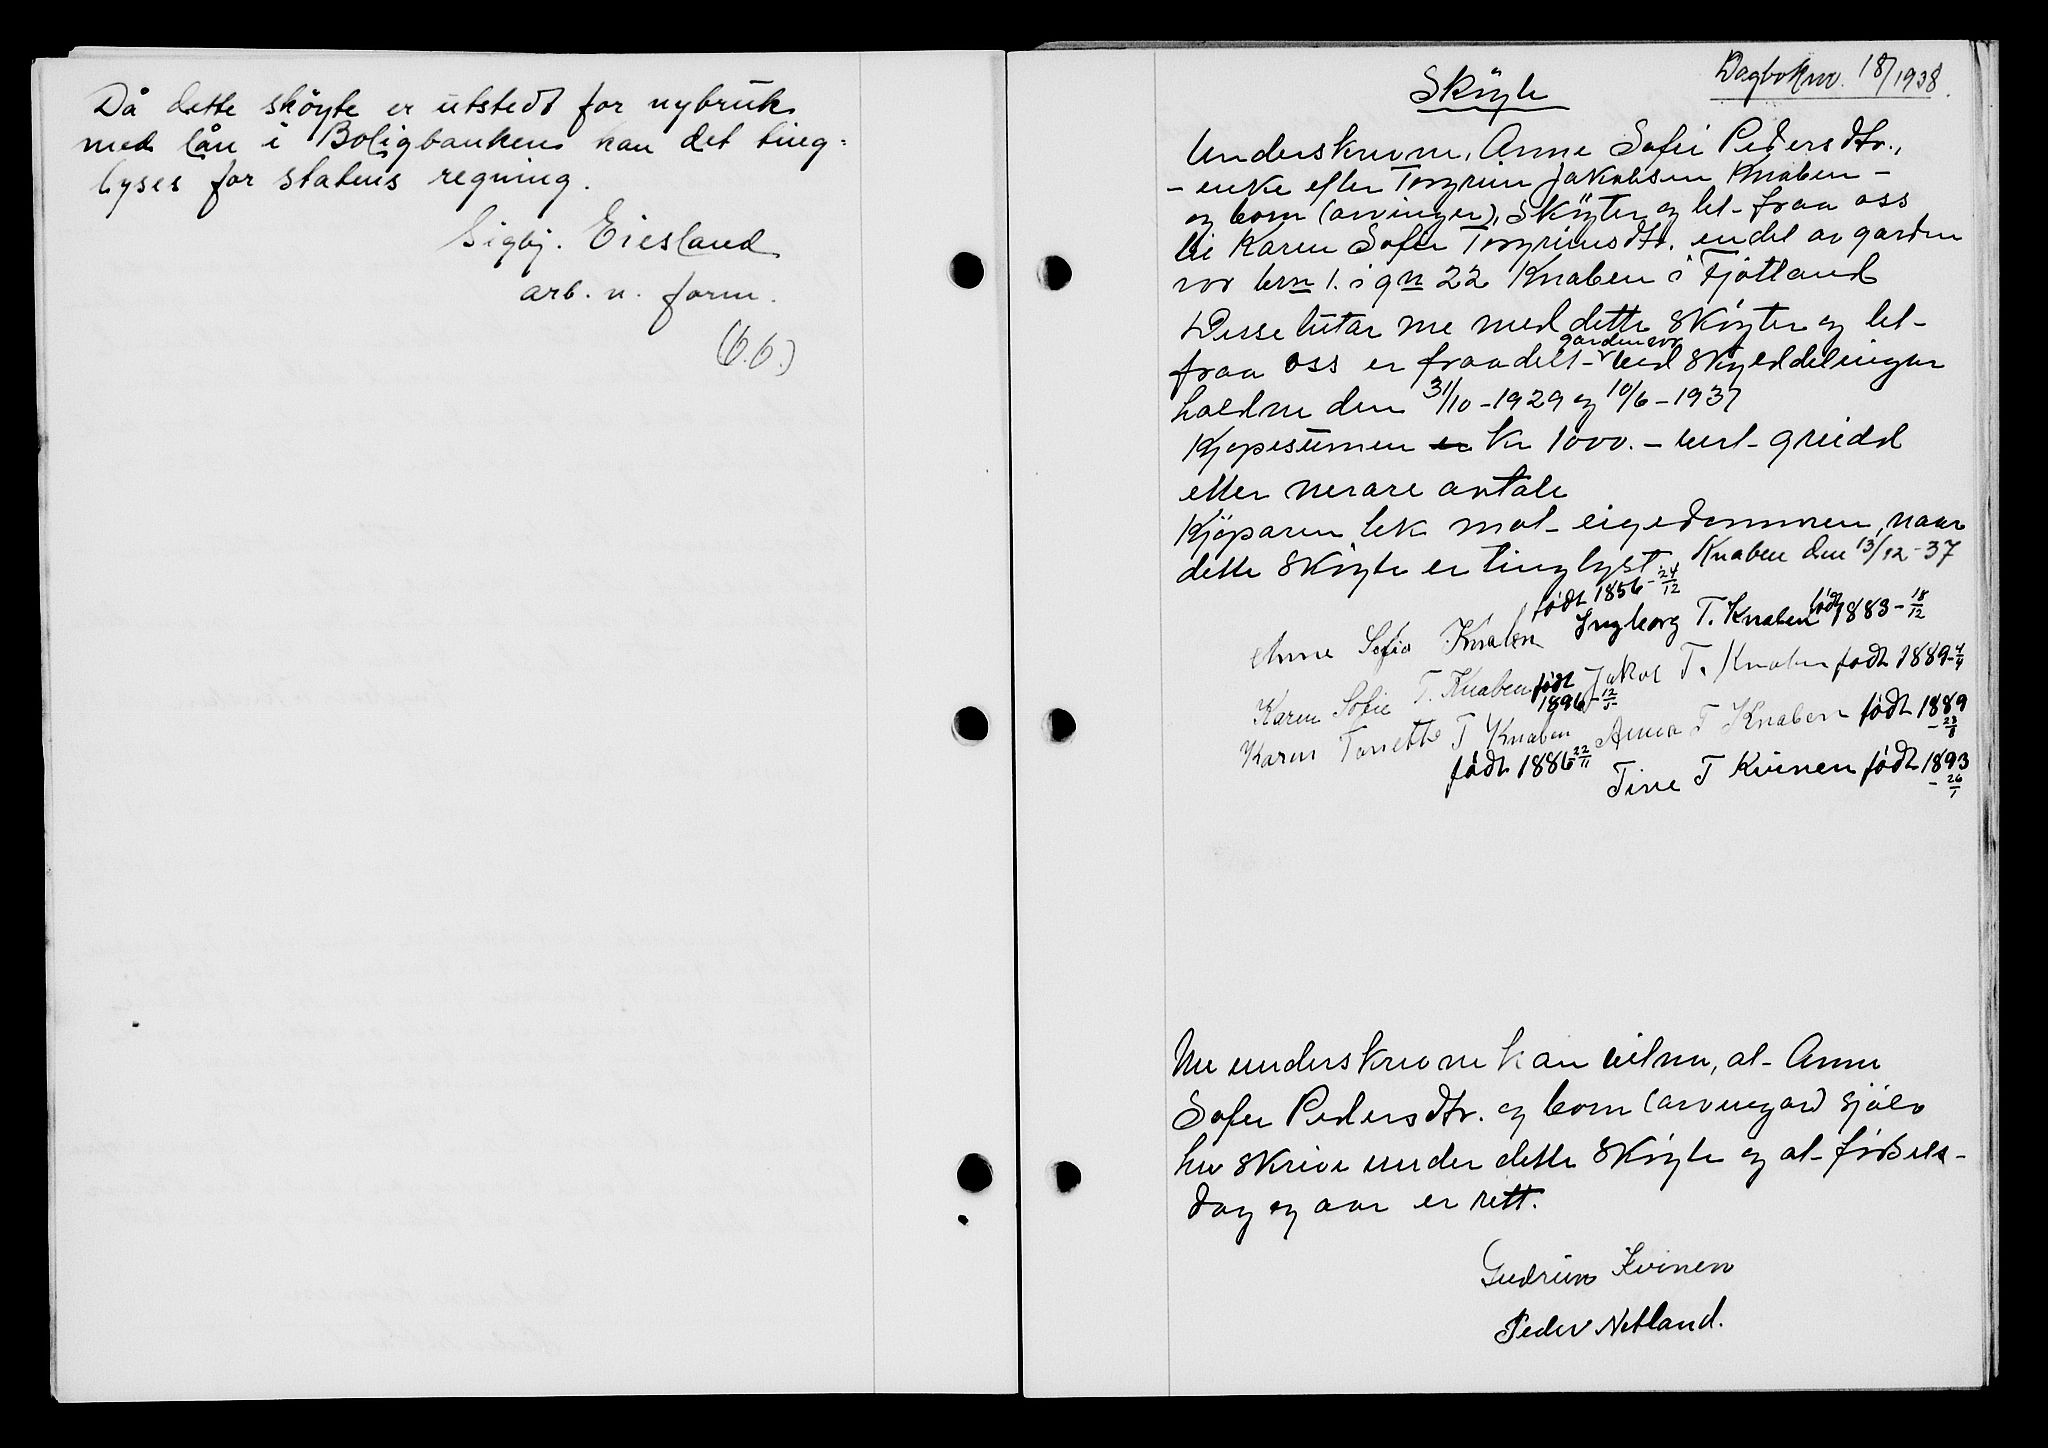 Då dette sköyte er utstedt for nybruk
med lån i Boligbanken kan det ting-
lyses for statens regning.
Sigbj. Eiesland
arb. n. form.
(6.6.)
Dagboknr. 18/1938.
Sköyte
Underskrivne, Anne Sofie Pedersdtr.,
- enke efter Torgrim Jakobsen Knaben -
og born (arvinger), Sköyter og let fraa oss
til Karen Sofie Torgrimsdtr. en del av garden
vor brn 1. i gn 22 Knaben i Fjotland
Desse lutar me med dette sköyter og let
fraa oss er fraadelt garden vor ved skylddelingar
haldne den 31/10-1929 og 10/6-1937
Kjøpesumen er kr 1000.-
etter nerare avtale
Kjöparen tek mot eigedommen, naar
dette sköyte er tinglyst. Knaben den 13/12-37
født 1856-24/12
Anne Sofie Knaben Ingborg T. Knaben født 1883-18/12
Karen Sofie T. Knaben født 1896-12/5 Jakob T. Knaben født 1889-4/4
Karen Tonette T Knaben Anna T Knaben født 1889-23/8
født 1886 22/11 Tine T Kvinen født 1893-26/1
Me underskrivne kan vitna, at Anne
Sofie Pedersdtr. og born (arvingar) sjølv
hev skrive under dette sköyte og at fødsels-
dag og aar er rett.
Gudrun Kvinen
Peder Netland.